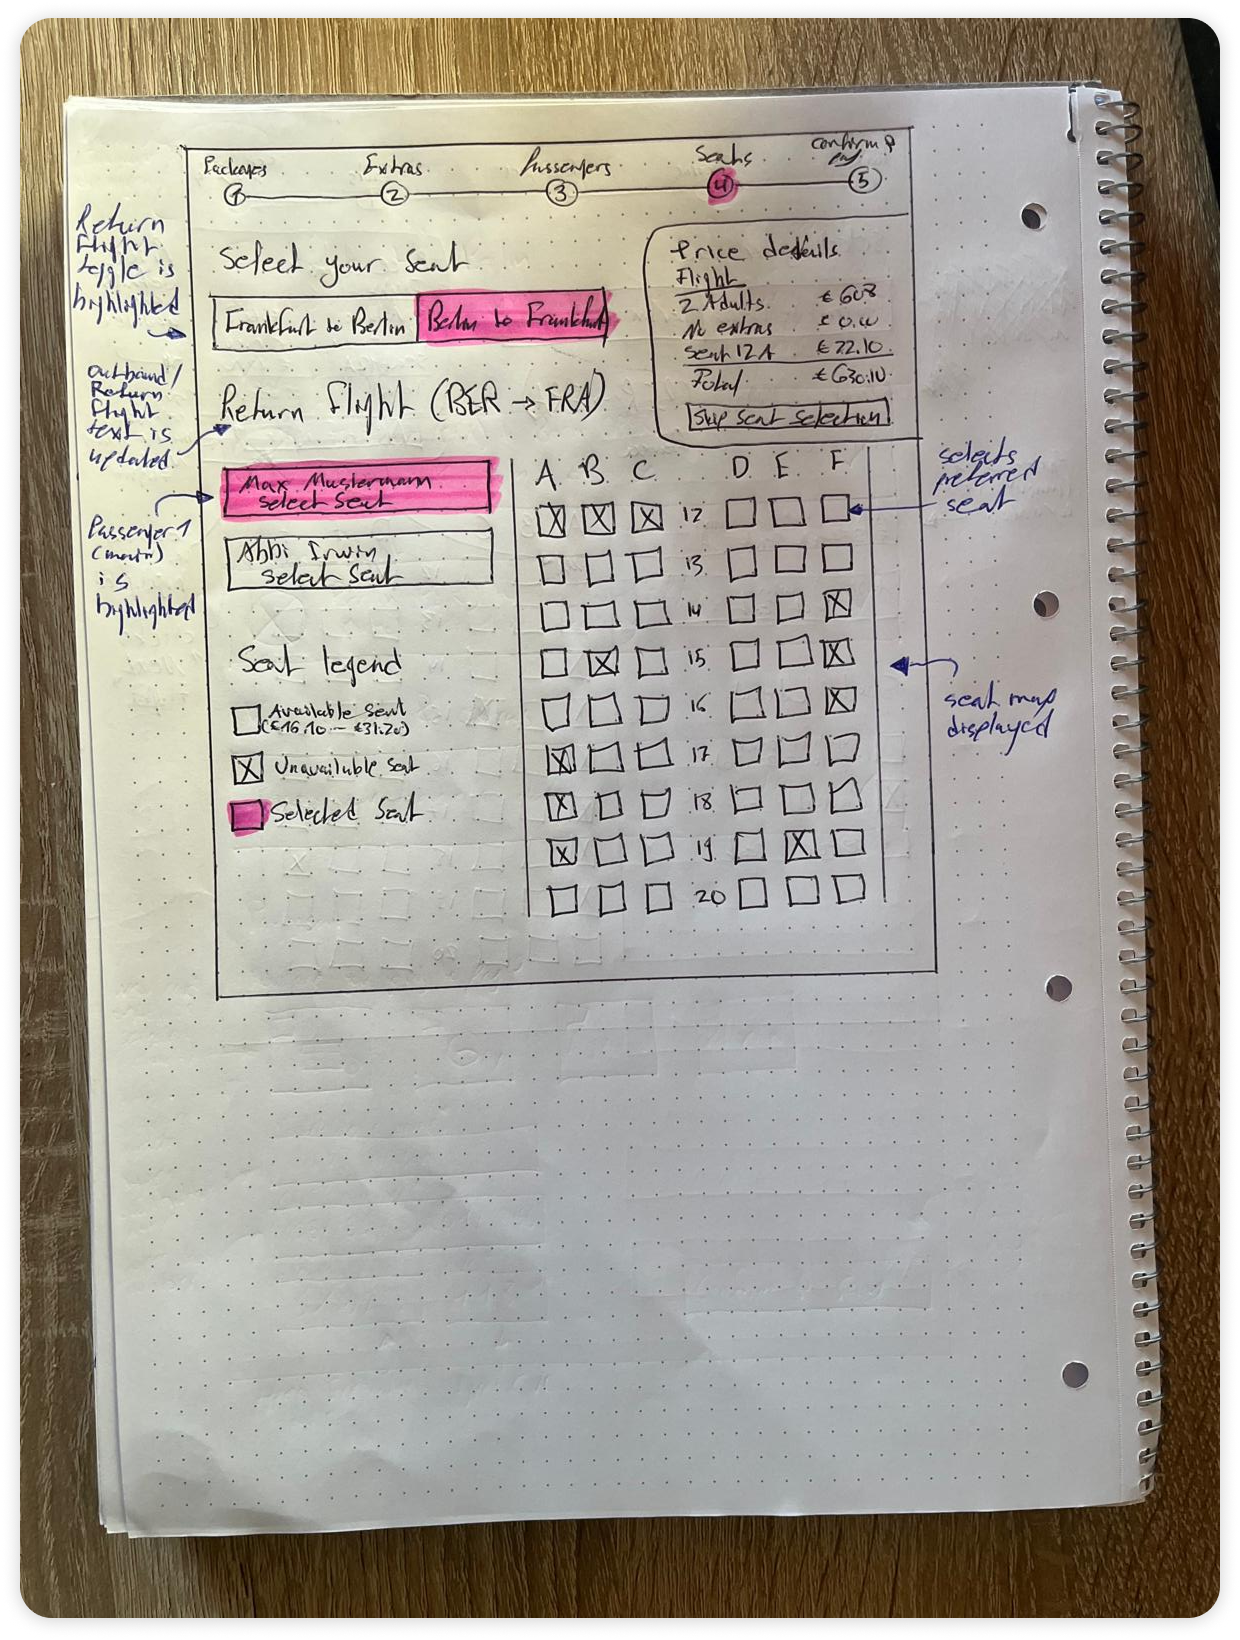 Packages Extras Passengers Seats confirm &
pay
1 2 3 4 5
Return
flight
toggle is
highlighted
Select your Seat
Frankfurt to Berlin Berlin to Frankfurt
Price details
Flight
2 Adults € 608
No extras € 0.00
Seat 12A € 22.10
Total € 630.10
Skip seat selection
outbound/
Return
flight
text is
updated
Return flight (BER → FRA)
Passenger 1
(main)
is
highlighted
Max Mustermann
select Seat
Abbi Irwin
select Seat
Seat legend
Available Seat
(€16.10 – €31.20)
Unavailable Seat
Selected Seat
A B C D E F
12
13
14
15
16
17
18
19
20
selects
preferred
seat
seat map
displayed